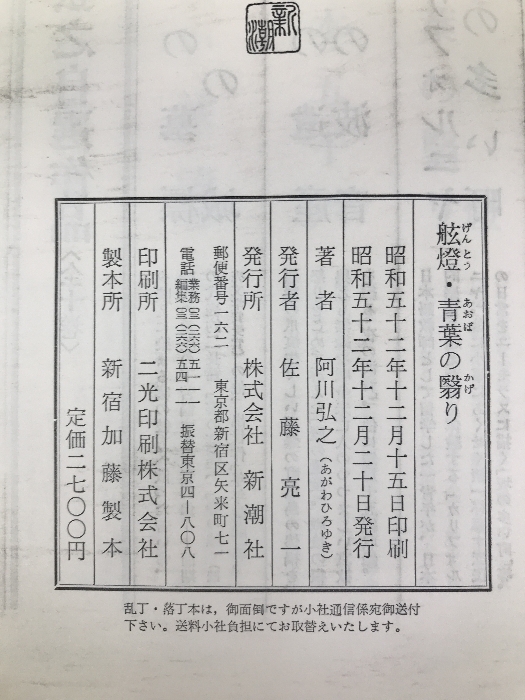 新潮
舷燈・青葉の翳り
げんとう あおば かげ
昭和五十二年十二月十五日印刷
昭和五十二年十二月二十日発行
著者 阿川弘之(あがわひろゆき)
発行者 佐藤亮一
発行所 株式会社 新潮社
郵便番号一六二 東京都新宿区矢来町七一
電話 業務(〇三)(二六六)五一一一 編集(〇三)(二六六)五四一一 振替東京四―八〇八
印刷所 二光印刷株式会社
製本所 新宿加藤製本
定価二七〇〇円
乱丁・落丁本は,御面倒ですが小社通信係宛御送付
下さい。送料小社負担にてお取替えいたします。